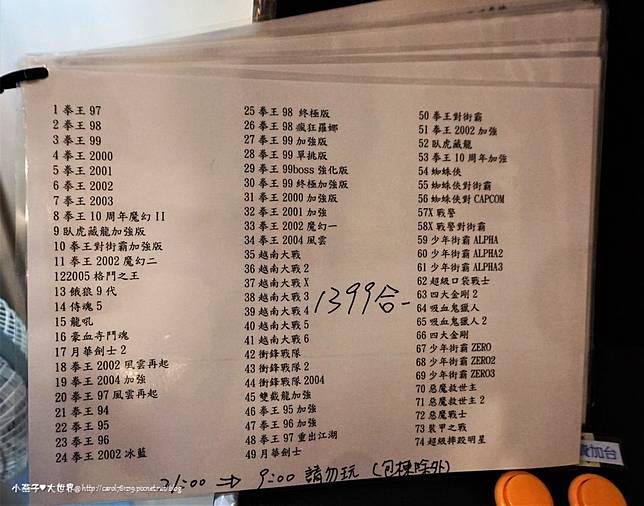 1 拳王 97
2 拳王 98
3 拳王 99
4 拳王 2000
5 拳王 2001
6 拳王 2002
7 拳王 2003
8 拳王 10 周年魔幻 II
9 臥虎藏龍加強版
10 拳王對街霸加強版
11 拳王 2002 魔幻二
122005 格鬥之王
13 餓狼 9 代
14 侍魂 5
15 龍吼
16 豪血寺鬥魂
17 月華劍士 2
18 拳王 2002 風雲再起
19 拳王 2004 加強
20 拳王 97 風雲再起
21 拳王 94
22 拳王 95
23 拳王 96
24 拳王 2002 冰藍
25 拳王 98 終極版
26 拳王 98 瘋狂羅娜
27 拳王 99 加強版
28 拳王 99 單挑版
29 拳王 99boss 強化版
30 拳王 99 終極加強版
31 拳王 2000 加強版
32 拳王 2001 加強
33 拳王 2002 魔幻一
34 拳王 2004 風雲
35 越南大戰
36 越南大戰 2
37 越南大戰 X
38 越南大戰 3
39 越南大戰 4
40 越南大戰 5
41 越南大戰 6
42 衝鋒戰隊
43 衝鋒戰隊 2
44 衝鋒戰隊 2004
45 雙截龍加強
46 拳王 95 加強
47 拳王 96 加強
48 拳王 97 重出江湖
49 月華劍士
50 拳王對街霸
51 拳王 2002 加強
52 臥虎藏龍
53 拳王 10 周年加強
54 蜘蛛俠
55 蜘蛛俠對街霸
56 蜘蛛俠對 CAPCOM
57X 戰警
58X 戰警對街霸
59 少年街霸 ALPHA
60 少年街霸 ALPHA2
61 少年街霸 ALPHA3
62 超級口袋戰士
63 四大金剛 2
64 吸血鬼獵人
65 吸血鬼獵人 2
66 四大金剛
67 少年街霸 ZERO
68 少年街霸 ZERO2
69 少年街霸 ZERO3
70 惡魔救世主
71 惡魔救世主 2
72 惡魔戰士
73 裝甲之戰
74 超級摔跤明星
1399合一
21:00 ⇒ 9:00 請勿玩 (包棟除外)
加台
小燕子♥大世界@http://carol78mg.pixnet.net/blog